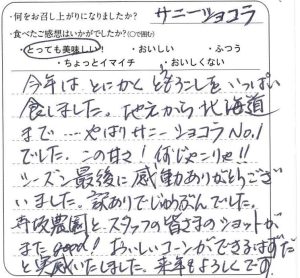 ・何をお召し上がりになりましたか?
サニーショコラ
・食べたご感想はいかがでしたか?(○で囲む)
・とっても美味しい! ・おいしい ・ふつう
・ちょっとイマイチ ・おいしくない
今年はとにかくとうもろこしをいっぱい
食しました。地元から北海道
まで…やはりサニーショコラNo.1
でした。この甘さ!何じゃこりゃ!!
シーズン最後に感動ありがとうござ
いました。訳ありでじゅうぶんでした。
寺坂農園とスタッフの皆さまのショットが
またgood! おいしいコーンができるはずだ
と実感いたしました。来年もよろしくです